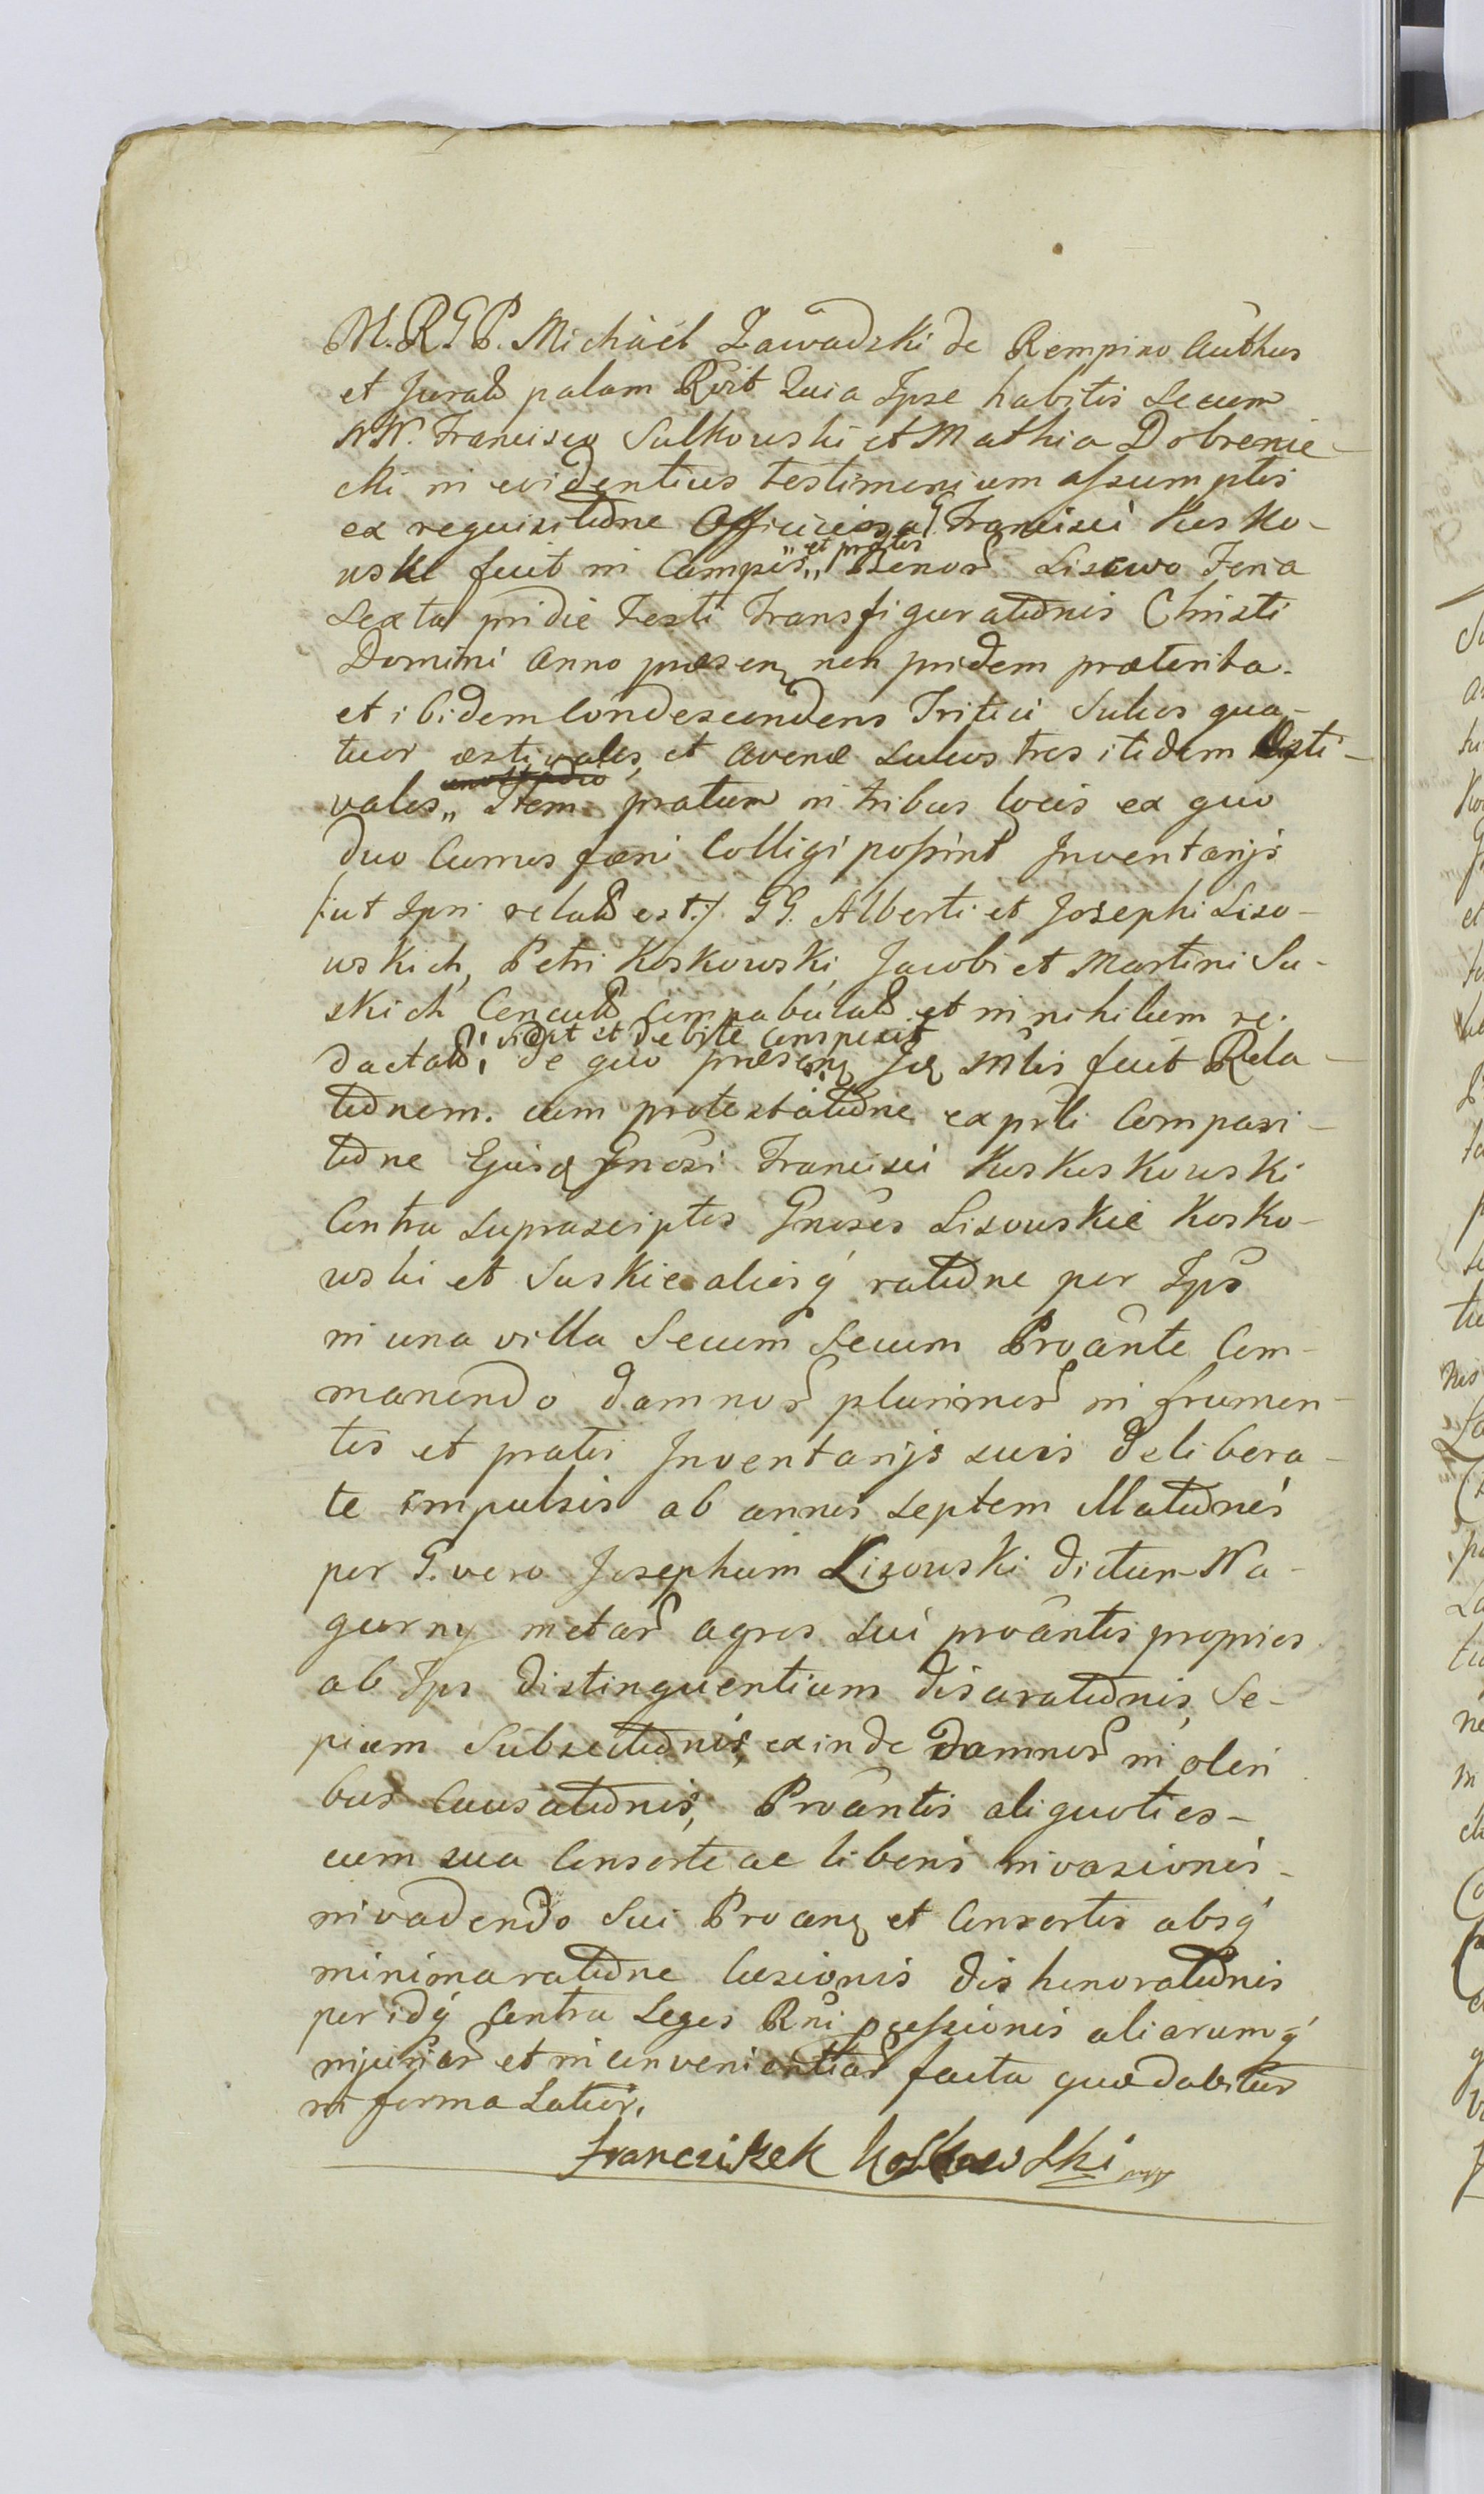 M. R. G P. Michàel Zawadzki de Rempino Authus
et Jurat palam Rvit Quia Ipse habitis secum
NN. Francisco Sulkowski et Mathia Dobrenie-
cki in evidentius testimonium assumptis
ex requisitione Officiosa G Francisci Kosko-
wski fuit in Campis „et pratis„ Bonor Lisewo Feria
Sexta pridie Festi Transfigurationis Christi
Domini Anno præsen non pridem præterita.
et ibidem Condescendens Tritici Sulcos qua-
tuor æstivales, et Avenæ sulcos tres itidem Æsti-
vales „ Item pratum in tribus locis ex quo
duo Currus fæni Colligi possint Inventarijs
/:ut Ipsi relat est:/ GG. Alberti et Josephi Liso-
wskich, Petri Koskowski, Jacobi et Martini Su-
skich Concult Compabulat et in nihilum re-
dactat: vidit et debite conspexit
de quo præsen Jq Mlis fecit Rela-
tionem. cum protestatione ex prli Compari-
tione Ejusq Gnosi Francisci Koskoskowski
Contra suprascriptos Gnosos Lisowskie Kosko-
wski et Suskie aliosq́ ratione per Ips
in una villa Secum Secum Proante Com-
manendo damnor plurimor in frumen-
tis et pratis Inventarijs suis delibera-
te impulsis ab annis septem Illationis
per G. vero Josephum Lisowski dictum Na-
gurny metar agros sui proantis proprios
ab Ips distinguentium disarationis, Se-
pium Subsectionis, exinde damnor in oleri
bus Causationis, Proantis aliquoties-
cum sua Consorte ac liberis invasionis-
invadendo Sui Proanq et Consortis absq́
minima ratione læsionis dishonorationis
per idq́ Contra Leges Rni pcessionis aliarumq́
injuriar et inconvenientiar facta quæ dabitur
in forma Latior.
Franciszek Koskowski mpp